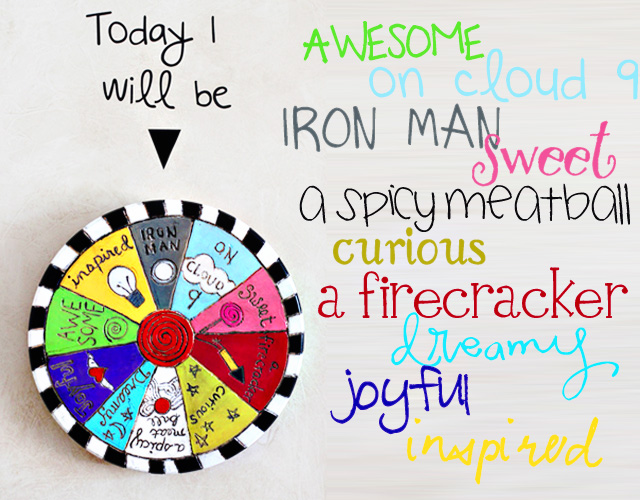 Today I
will be
IRON
MAN
ON
CLOUD
9
Sweet
a
firecracker
curious
a spicy
meat
ball
Dreamy
Joyful
AWE
SOME
inspired
AWESOME
on cloud 9
IRON MAN
sweet
a spicy meatball
curious
a firecracker
dreamy
joyful
inspired